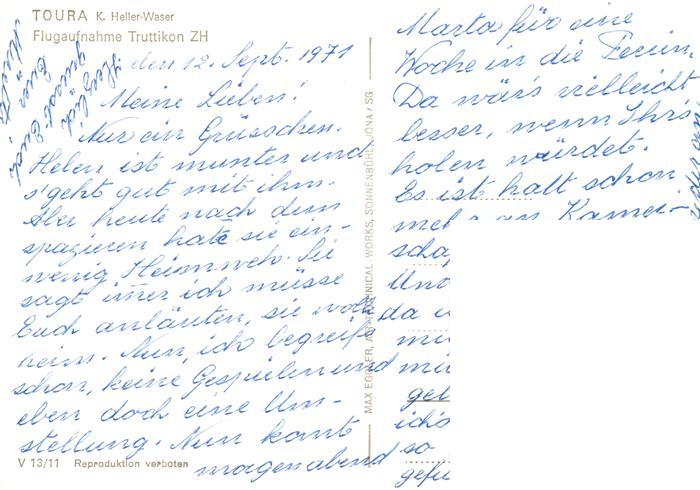 TOURA K. Heller-Waser
Flugaufnahme Truttikon ZH
den 12. Sept. 1971
Meine Lieben!
Nur ein Grüsschen.
Helen ist munter und
s'geht gut mit ihm.
Aber heute nach dem
spazieren hatte sie ein-
wenig Heimweh. Sie
sagt immer ich müsse
Euch anläuten, sie woll
heim. Nun, ich begreifs
schon, keine Gespielen und
eben doch eine Um-
stellung. Nun komt
morgen abend
V 13/11 Reproduktion verboten
MAX EGGLER, TECHNICAL WORKS, SONNENBÜHL, JONA / SG
Marta für eine
Woche in die Ferien.
Da wär's vielleicht
besser, wenn Ihrs
holen würdet.
Es ist halt schon
an Kamer-
scha
Und
da
mi
mi
ge
ich's
so
gefü
Herzlich
grüsst Euch
Euer